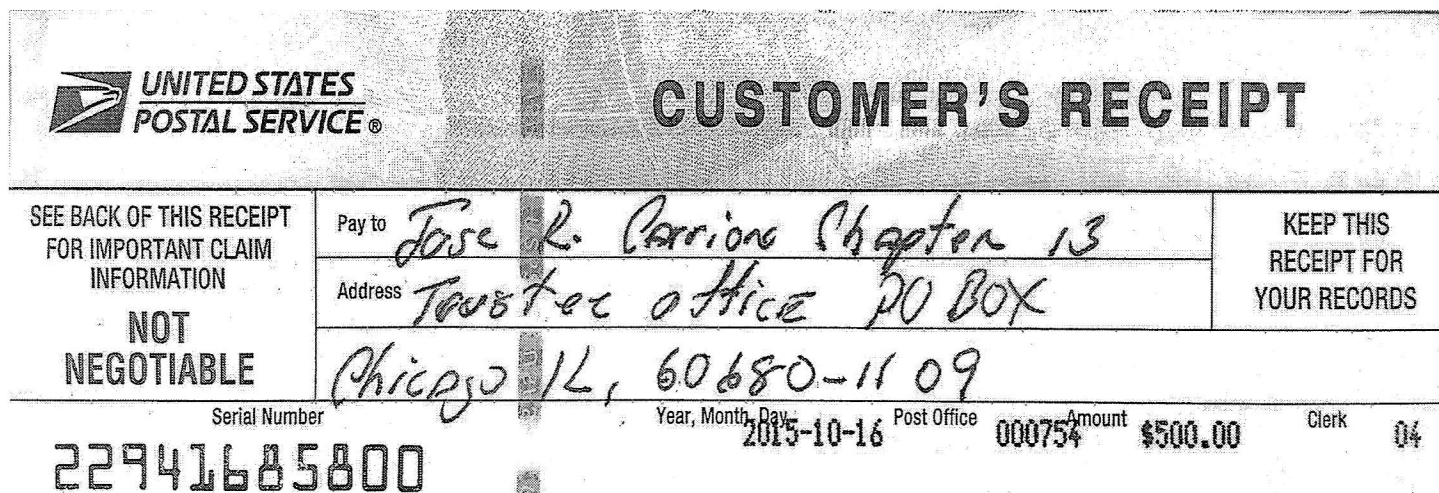 UNITED STATES
POSTAL SERVICE ®
CUSTOMER'S RECEIPT
SEE BACK OF THIS RECEIPT
FOR IMPORTANT CLAIM
INFORMATION
NOT
NEGOTIABLE
Pay to Jose R. Carrion Chapter 13
Address Trustee office PO BOX
Chicago IL, 60680-1109
KEEP THIS
RECEIPT FOR
YOUR RECORDS
Serial Number
22941685800
Year, Month, Day 2015-10-16
Post Office 000754
Amount $500.00
Clerk 04